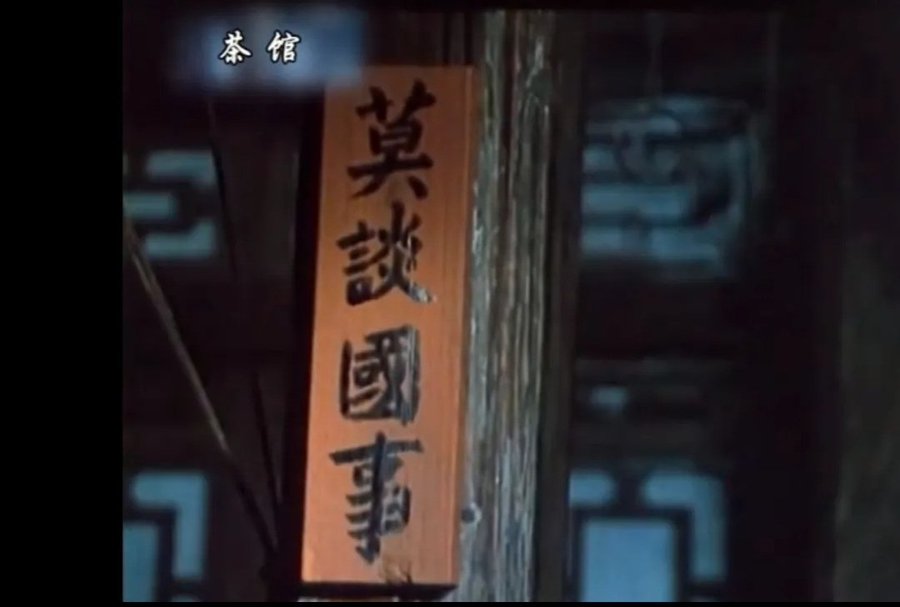 茶馆
莫談國事